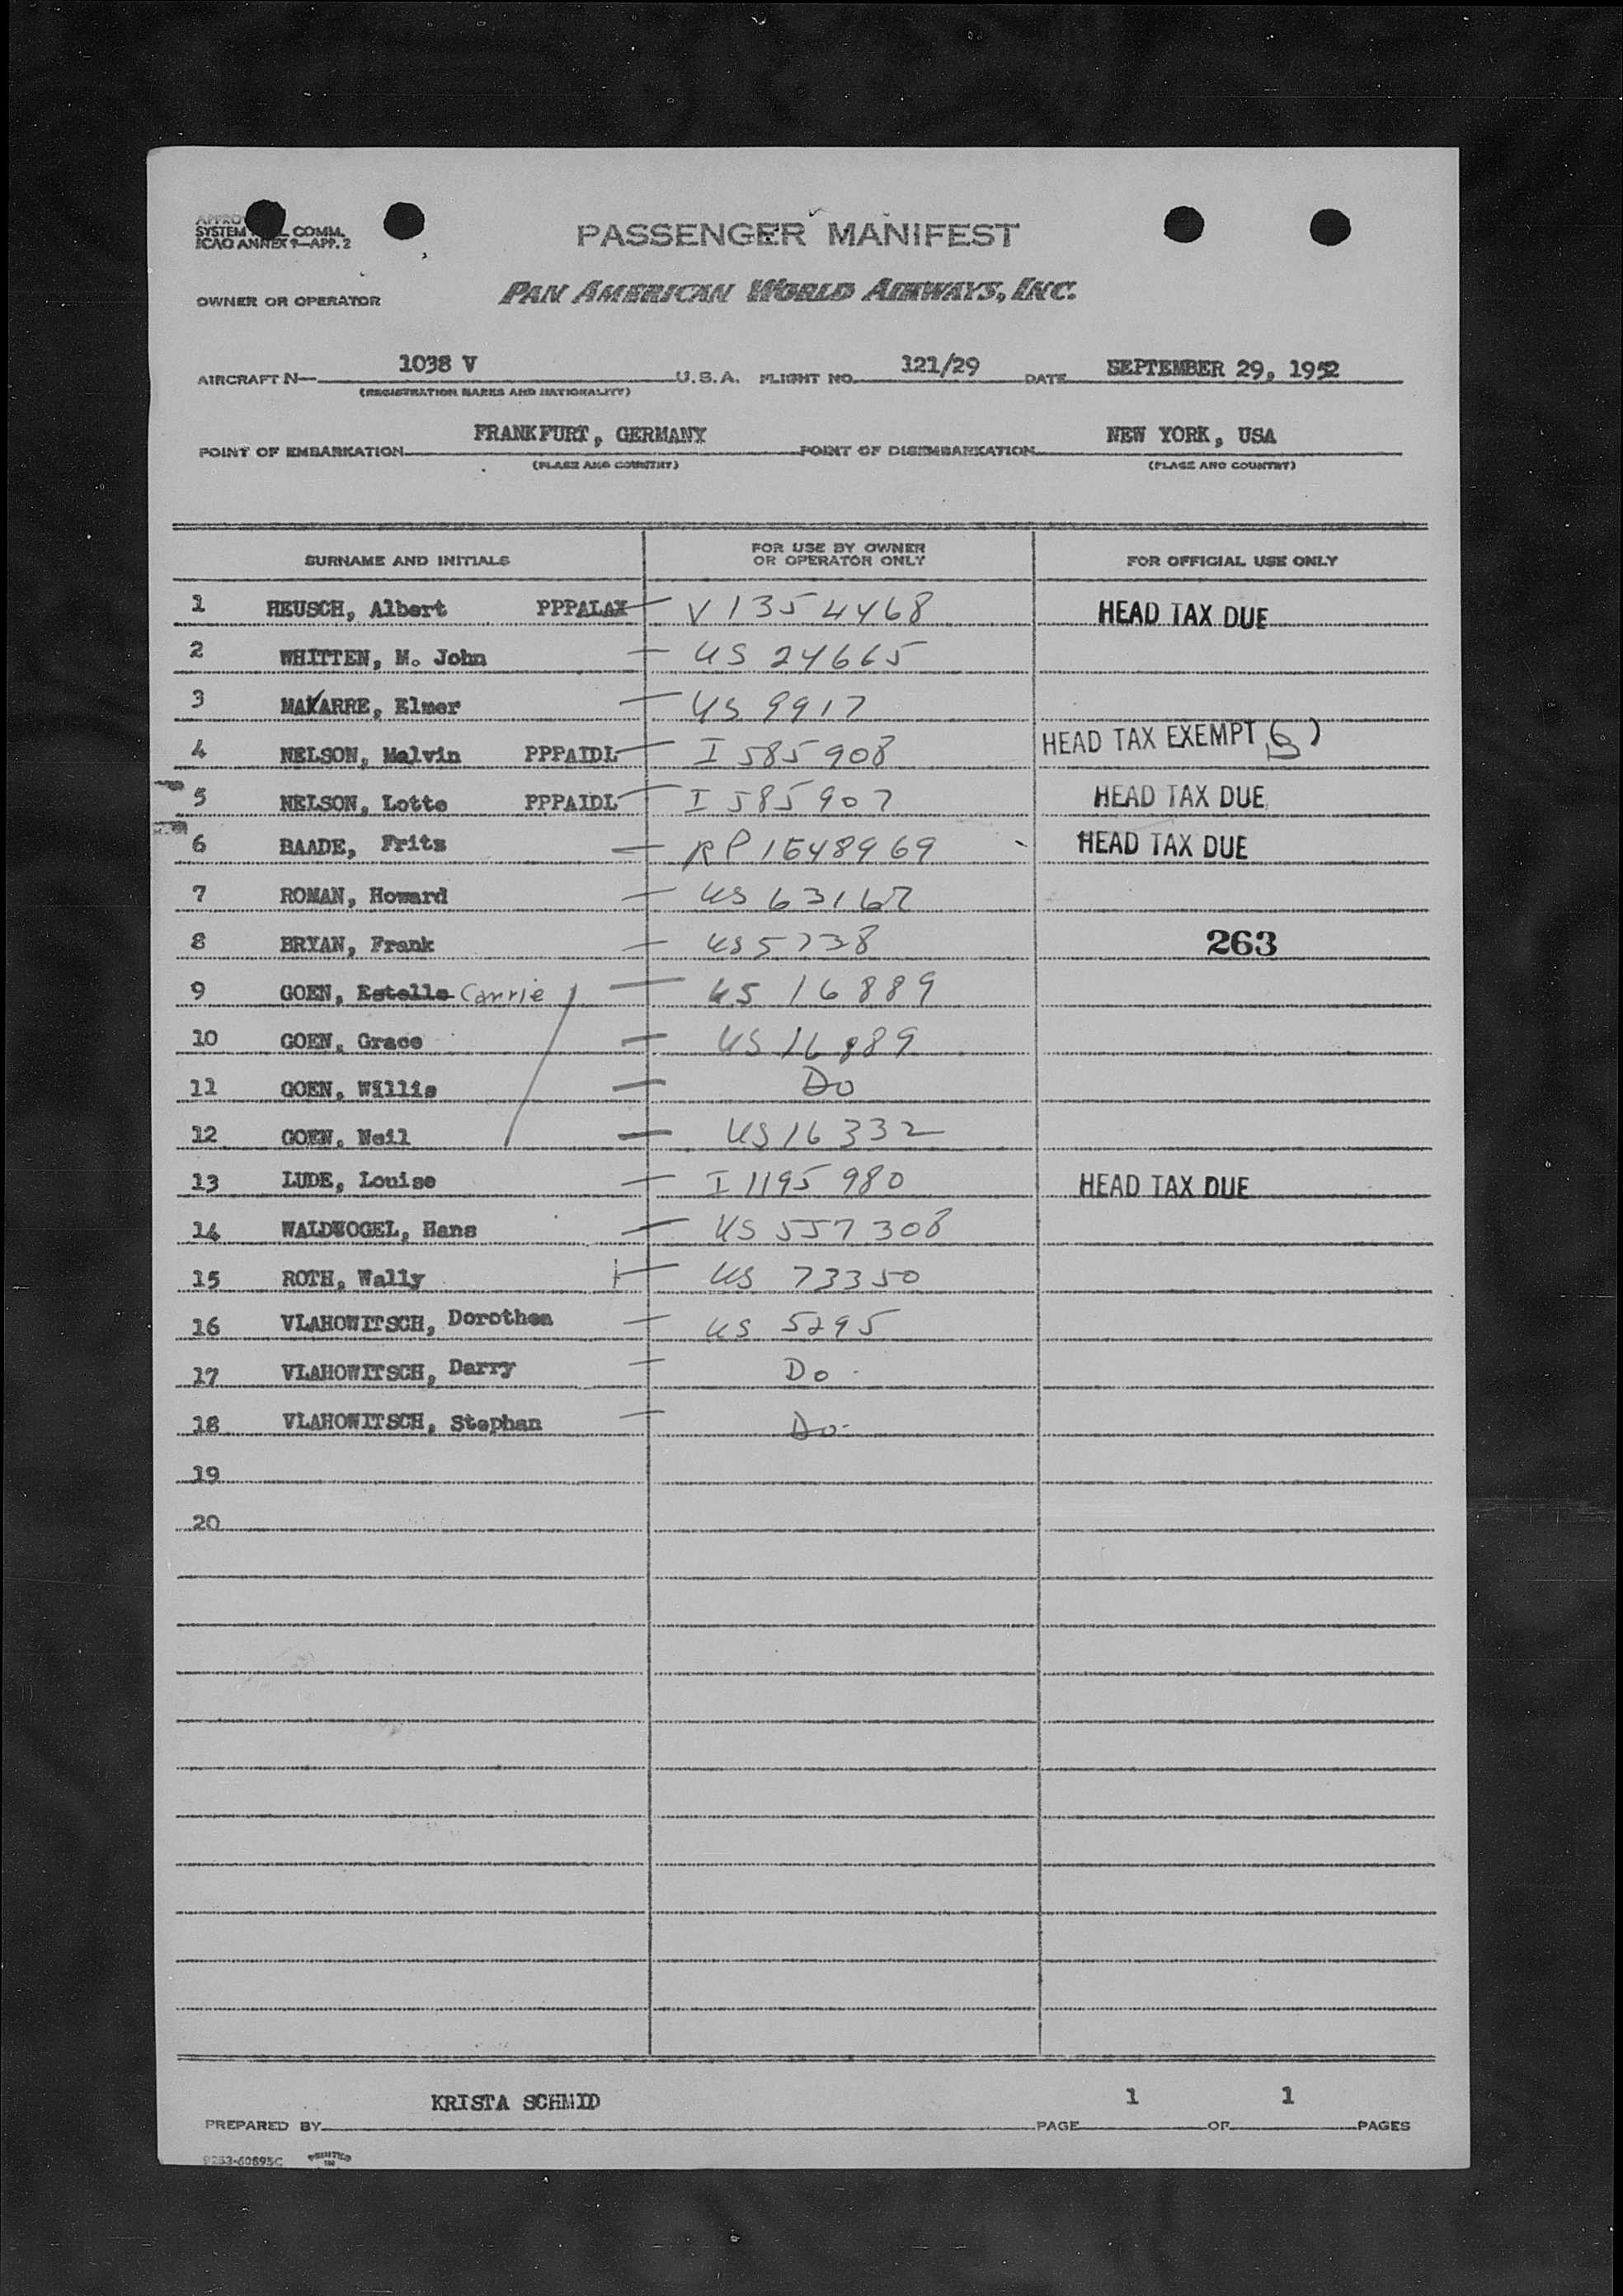 APPRO
SYSTEM L COMM.
ICAO ANNEX 9—APP. 2
PASSENGER MANIFEST
OWNER OR OPERATOR PAN AMERICAN WORLD AIRWAYS, INC.
AIRCRAFT N— 1038 V U.S.A. FLIGHT NO. 121/29 DATE SEPTEMBER 29, 1952
(REGISTRATION MARKS AND NATIONALITY)
POINT OF EMBARKATION FRANKFURT, GERMANY POINT OF DISEMBARKATION NEW YORK, USA
(PLACE AND COUNTRY) (PLACE AND COUNTRY)
SURNAME AND INITIALS FOR USE BY OWNER OR OPERATOR ONLY FOR OFFICIAL USE ONLY
1 HEUSCH, Albert PPPALAX — V 1354468 HEAD TAX DUE
2 WHITTEN, M. John — US 24665
3 MAYARRE, Elmer — US 9917
4 NELSON, Melvin PPPAIDL — I 585908 HEAD TAX EXEMPT
5 NELSON, Lotte PPPAIDL — I 585907 HEAD TAX DUE
6 BAADE, Fritz — RP 1548969 HEAD TAX DUE
7 ROMAN, Howard — US 63167
8 BRYAN, Frank — US 5738 263
9 GOEN, Estelle Carrie — US 16889
10 GOEN, Grace — US 16889
11 GOEN, Willis — Do
12 GOEN, Neil — US 16332
13 LUDE, Louise — I 1195980 HEAD TAX DUE
14 WALDVOGEL, Hans — US 557308
15 ROTH, Wally — US 73350
16 VLAHOWITSCH, Dorothea — US 5295
17 VLAHOWITSCH, Darry — Do
18 VLAHOWITSCH, Stephan — Do
19
20
PREPARED BY KRISTA SCHMID PAGE 1 OF 1 PAGES
9253-60895C PRINTED IN